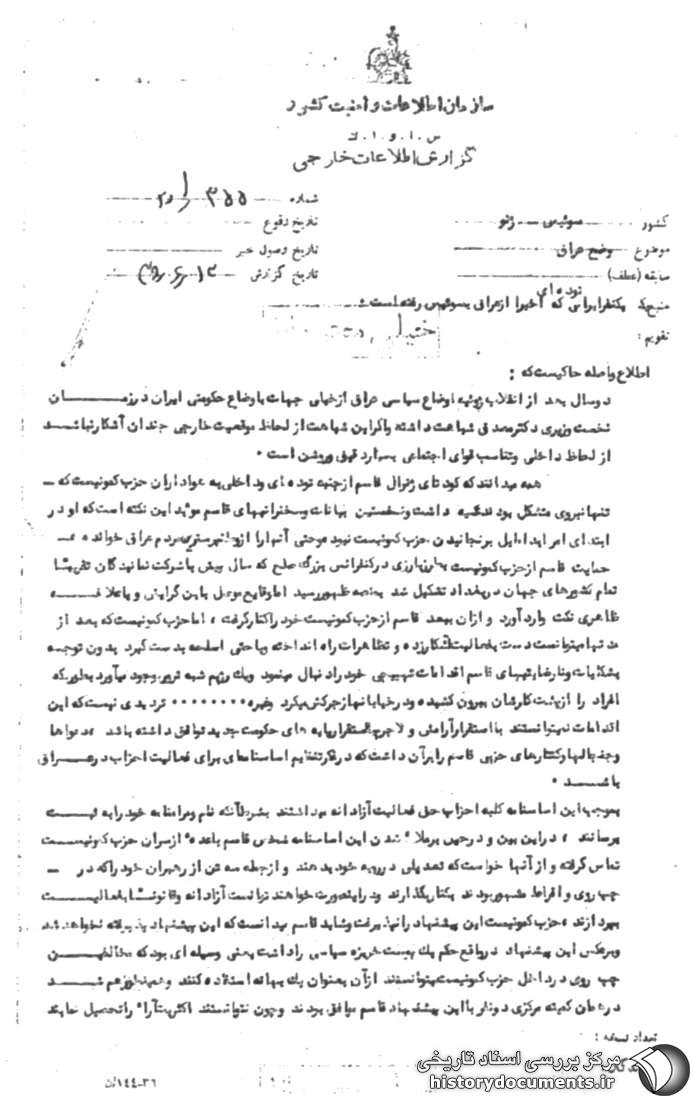 سازمان اطلاعات و امنیت کشور
س . ا . و . ا . ک
گزارش اطلاعات خارجی
کشور سوئیس ـ ژنو
شماره ۳۵۵
موضوع وضع عراق
تاریخ وقوع
سابقه (عطف)
تاریخ وصول خبر
تاریخ گزارش
منبع یکنفر ایرانی توده ای که اخیرا از عراق بسوئیس رفته است .
تقویم :
خیلی محرمانه
اطلاع واصله حاکیست که :
دوسال بعد از انقلاب ژوئیه اوضاع سیاسی عراق از خیلی جهات با وضاع حکومتی ایران در زمـــان
نخست وزیری دکتر مصدق شباهت داشته و اگر این شباهت از لحاظ موقعیت خارجی چندان آشکار نباشـد
از لحاظ داخلی و تناسب قوای اجتماعی بسیار دقیق و روشن است .
همه میدانند که کودتای ژنرال قاسم از جنبه توده ای و داخلی به هواداران حزب کمونیست که
تنها نیروی متشکل بودند تکیه داشت و نخستین بیانات و سخنرانیهای قاسم موئید این نکته است که او در
ابتدای امر ابدا مایل برنجانیدن حزب کمونیست نبود و حتی آنها را مردم عراق خوانده
حمایت قاسم از حزب کمونیست بطرز بارزی در کنفرانس بزرگ صلح که سال پیش با شرکت نمایندگان تقریبا
تمام کشورهای جهان در بغداد تشکیل شد بمنصه ظهور رسید اما وقایع موصل باین گرایش و یا علاقـــه
ظاهری نکث وارد آورد و از آن ببعد قاسم از حزب کمونیست خود را کنار گرفته ، اما حزب کمونیست که بعد از
مدتها میتوانست دست بفعالیت آشکار زده و تظاهرات راه انداخته و یا حتی اسلحه بدست گیرد بدون توجه
بشکایات و نارضایتیهای قاسم اقدامات تهییجی خود را دنبال مینمود ویک رژیم شبه ترور بوجود میآورد بطوریکه
افراد را از پشت کارشان بیرون کشیده و در خیابانها زجرکش میکرد وغیره ........ تردیدی نیست که این
اقدامات نمیتوانستند با استقرار آرامش و لاجرم استقرار پایه های حکومت جدید توافق داشته باشد ، دعواها
وجنجالها و کشتارهای حزبی قاسم را بر آن داشت که در فکر تنظیم اساسنامه ای برای فعالیت احزاب در عـــراق
باشـــد .
بموجب این اساسنامه کلیه احزاب حق فعالیت آزادانه میداشتند بشرط آنکه نام و مرامنامه خود را به ثبـــت
برسانند ، در این بین و در حین برملا شدن این اساسنامه شخص قاسم با عده ای از سران حزب کمونیســت
تماس گرفته و از آنها خواست که تعدیلی در رویه خود بدهند و از جمله سه تن از رهبران خود را که در
چپ روی و افراط مشهور بودند بکنار بگذارند و در اینصورت خواهند توانست آزادانه و قانونا بفعالیـــت
بپردازند ، حزب کمونیست این پیشنهاد را نپذیرفت و شاید قاسم میدانست که این پیشنهاد پذیرفته نخواهد شد
وبرعکس این پیشنهاد در واقع حکم یک پوست خربزه سیاسی را داشت یعنی وسیله ای بود که مخالفیـــن
چپ روی در داخل حزب کمونیست میتوانستند از آن بعنوان یک بهانه استفاده کنند و همینطور هم شـــد
در همان کمیته مرکزی دونفر با این پیشنهاد قاسم موافق بودند وچون نتوانستند اکثریت آراء را تحصیل نمایند
تعداد نسخه :
۱۴۴-۳۶
مرکز بررسی اسناد تاریخی
historydocuments.ir